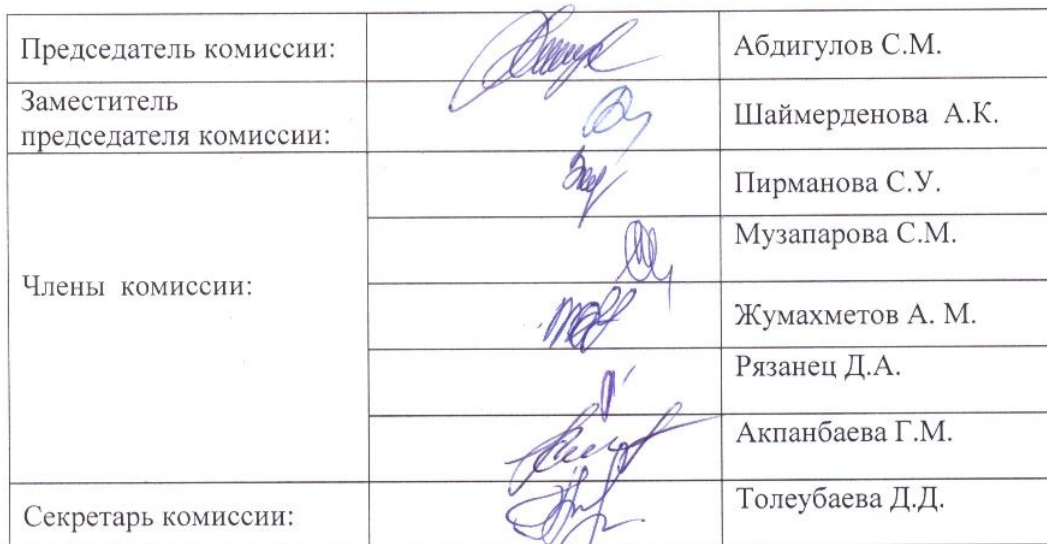 Председатель комиссии: Абдигулов С.М.
Заместитель
председателя комиссии: Шаймерденова А.К.
Пирманова С.У.
Музапарова С.М.
Члены комиссии:
Жумахметов А. М.
Рязанец Д.А.
Акпанбаева Г.М.
Секретарь комиссии: Толеубаева Д.Д.